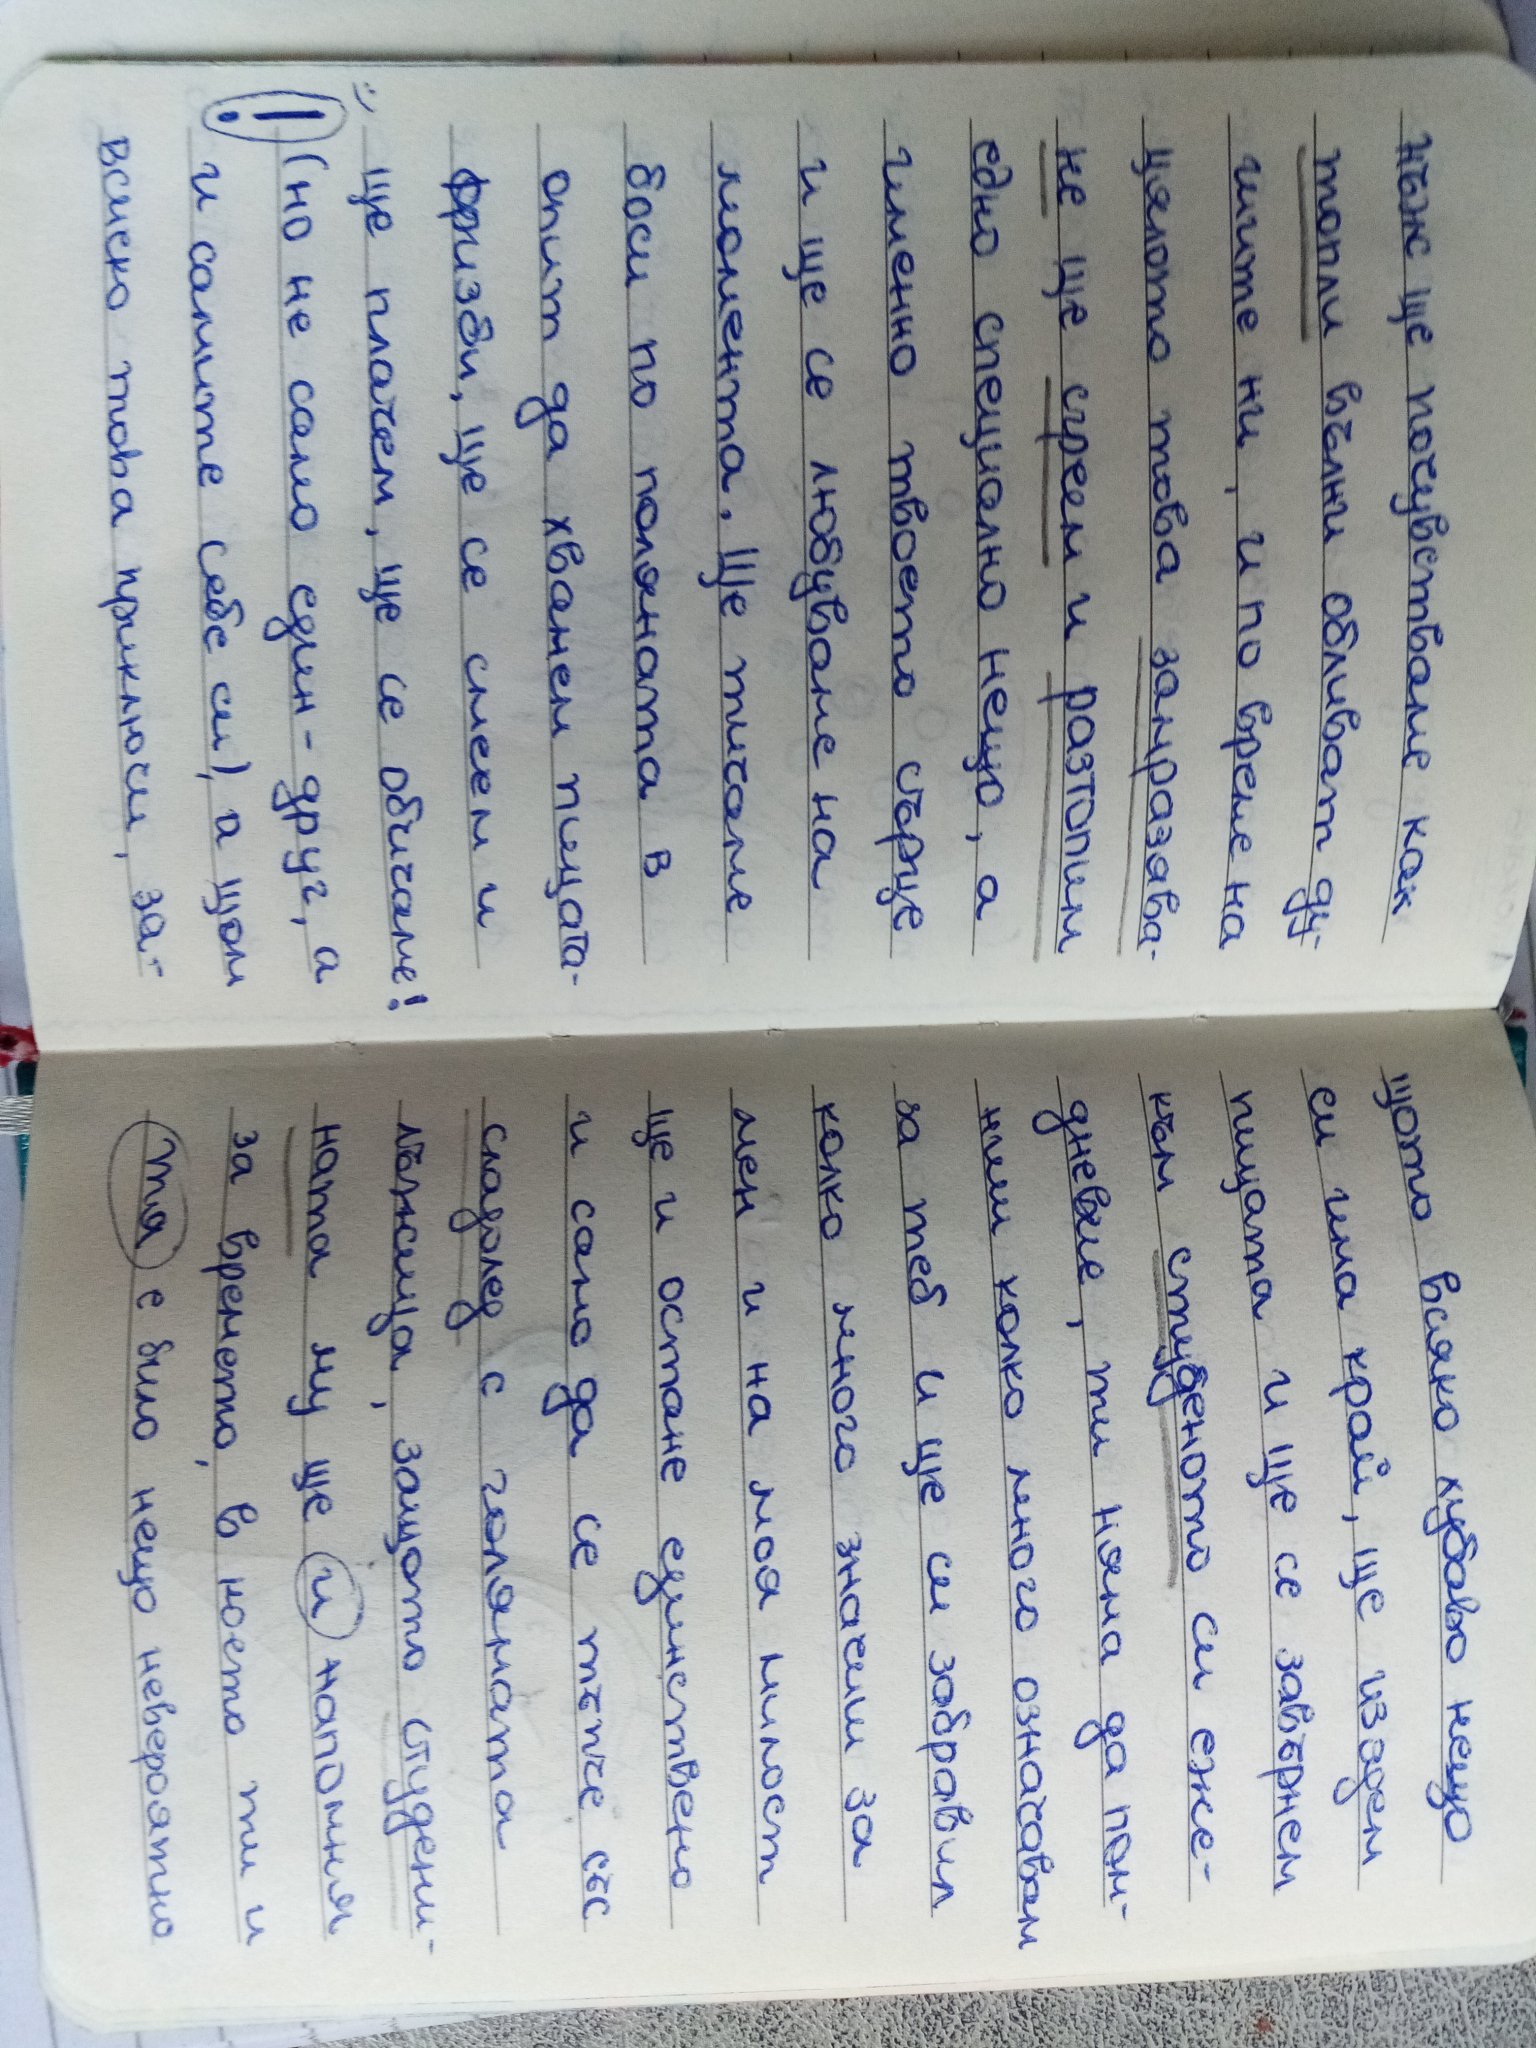 нъж ще почувстваме как
топли вълни обливат ду-
шите ни, и по време на
цялото това замразява-
не ще сгреем и разтопим
едно специално нещо, а
именно твоето сърце
и ще се любуваме на
момента. Ще тичаме
боси по поляната в
опит да хванем пицата-
фризби, ще се смеем и
ще плачем, ще се обичаме!
(но не само един-друг, а
и самите себе си), а щом
всичко това приключи, за-
щото всяко хубаво нещо
си има край, ще изядем
пицата и ще се завърнем
към студеното си еже-
дневие, ти няма да пом-
ниш колко много означавам
за теб и ще си забравил
колко много значиш за
мен и на моя милост
ще и остане единствено
и само да се тъпче със
сладолед с голямата
лъжица, защото студени-
ната му ще ѝ напомня
за времето, в което ти и
тя е било нещо невероятно